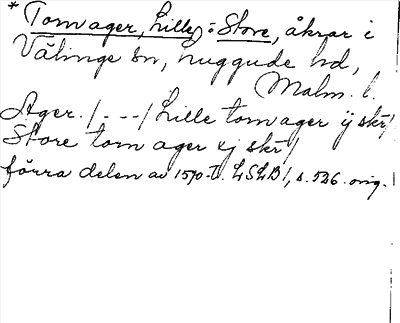 * Tom ager, Lille, : Store, åkrar i
Välinge sn, Luggude hd,
Malm. l.
Ager. /. - - -/ Lille tom ager ij skr/
Store tom ager xj skr/
förra delen av 1570-t. LSLB1, s. 526. orig.